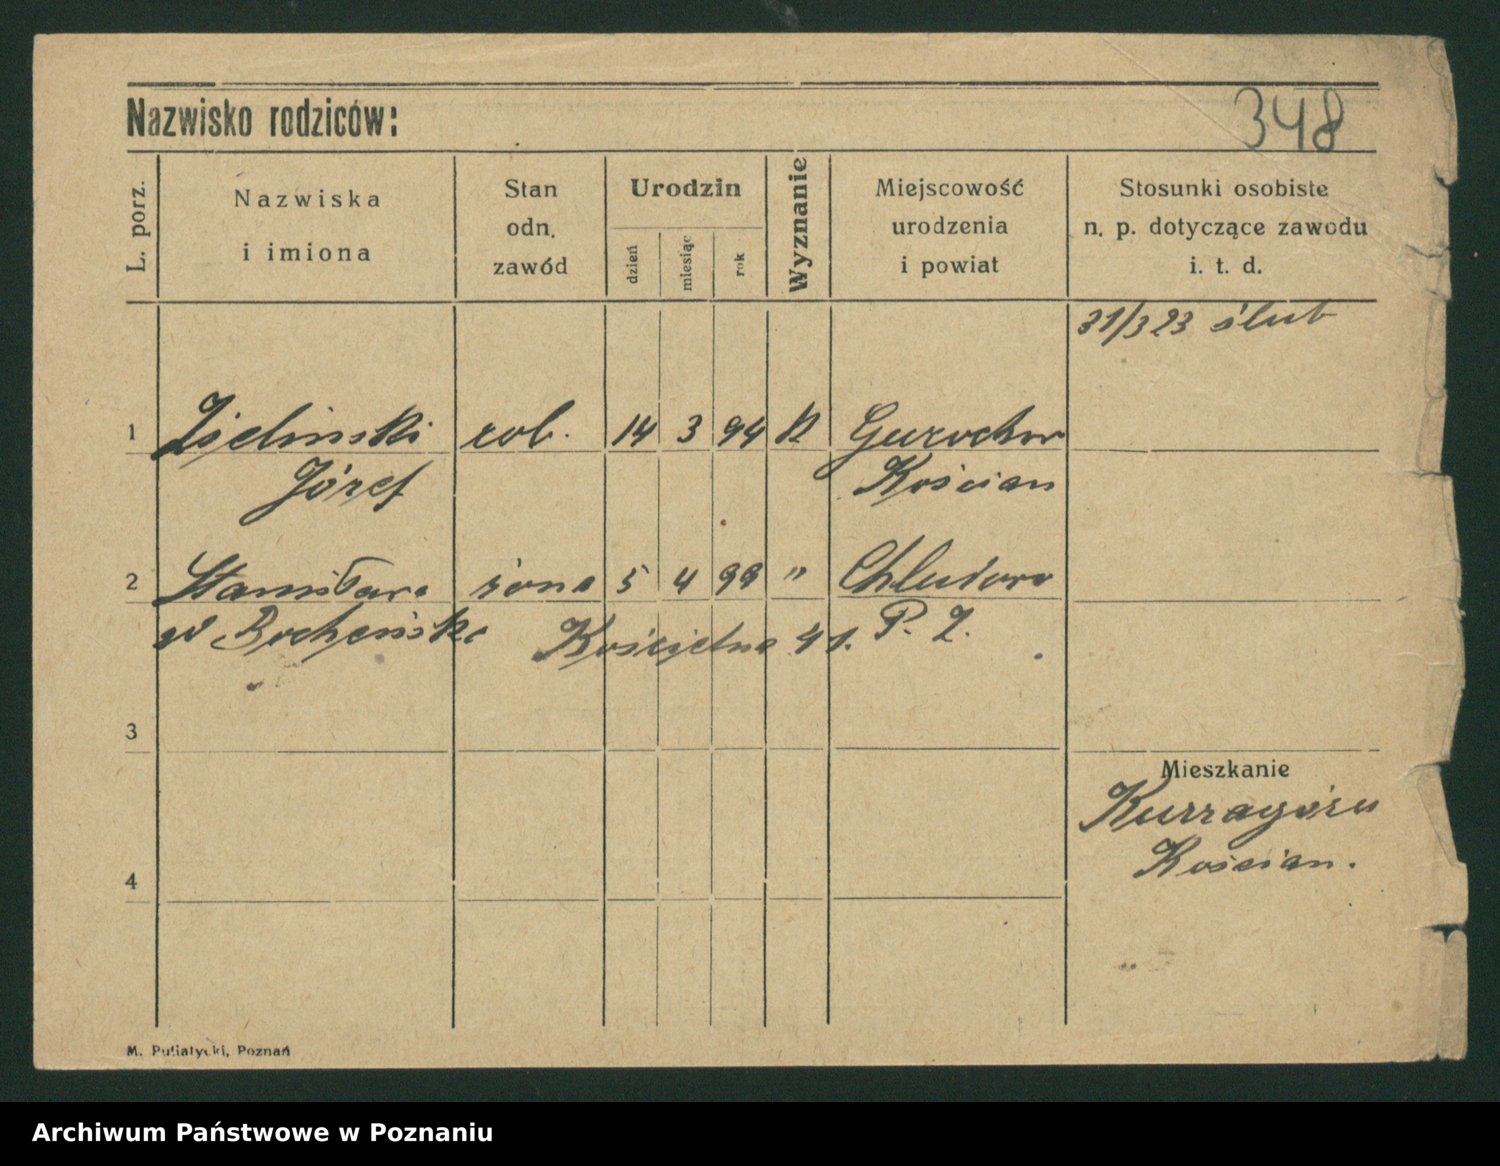 Nazwisko rodziców:
348
L. porz.
Nazwiska
i imiona
Stan
odn.
zawód
Urodzin
dzień
miesiąc
rok
Wyznanie
Miejscowość
urodzenia
i powiat
Stosunki osobiste
n. p. dotyczące zawodu
i. t. d.
31/3 23 ślub
1 Zieliński rob. 14 3 94 k
Józef Kościan
2 Stanisława żona 5 4 99 " Chludowo
Kościelna 41. P. Z.
3
Mieszkanie
Kurzagóra
Kościan.
4
M. Putiatycki, Poznań
Archiwum Państwowe w Poznaniu